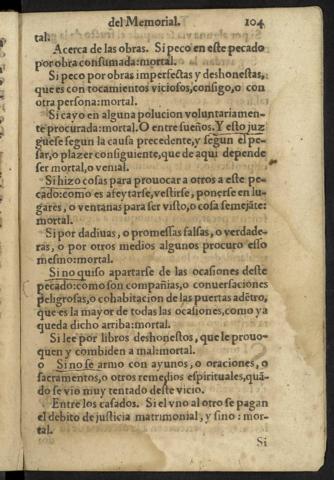 del Memorial. 104
tal.
Acerca de las obras. Si peco en este pecado
por obra consumada:mortal.
Si peco por obras imperfectas y deshonestas,
que es con tocamientos viciosos, consigo, o con
otra persona:mortal.
Si cayo en alguna polucion voluntariamen-
te procurada:mortal. O entre sueños. Y esto juz
guese segun la causa precedente, y segun el pe-
sar, o plazer consiguiente, que de aqui depende
ser mortal, o venial.
Si hizo cosas para prouocar a otros a este pe-
cado:como es afeytarse, vestirse, ponerse en lu-
gares, o ventanas para ser visto, o cosa semejāte:
mortal.
Si por dadiuas, o promessas falsas, o verdade-
ras, o por otros medios algunos procuro esso
mesmo:mortal.
Si no quiso apartarse de las ocasiones deste
pecado:como son compañias, o conuersaciones
peligrosas, o cohabitacion de las puertas adētro,
que es la mayor de todas las ocasiones, como ya
queda dicho arriba:mortal.
Si lee por libros deshonestos, que le prouo-
quen y combiden a mal:mortal.
o Si no se armo con ayunos, o oraciones, o
sacramentos, o otros remedios espirituales, quā-
do se vio muy tentado deste vicio.
Entre los casados. Si el vno al otro se pagan
el debito de justicia matrimonial, y sino : mor-
tal.
Si